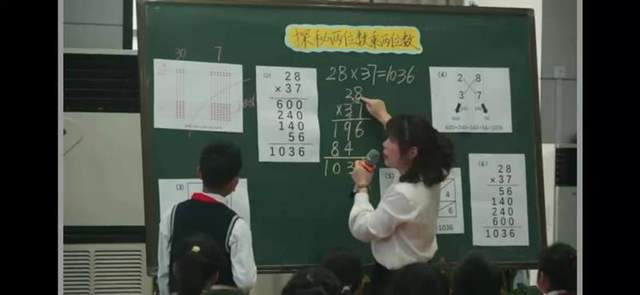 探秘两位数乘两位数
30 7
(2)
28
×37
600
240
140
56
1036
28×37=1036
28
×37
196
84
103
(4)
2 8
3 7
600+240+140+56=1036
(3)
(5)
4
6
1036
(6)
28
×37
56
140
240
600
1036